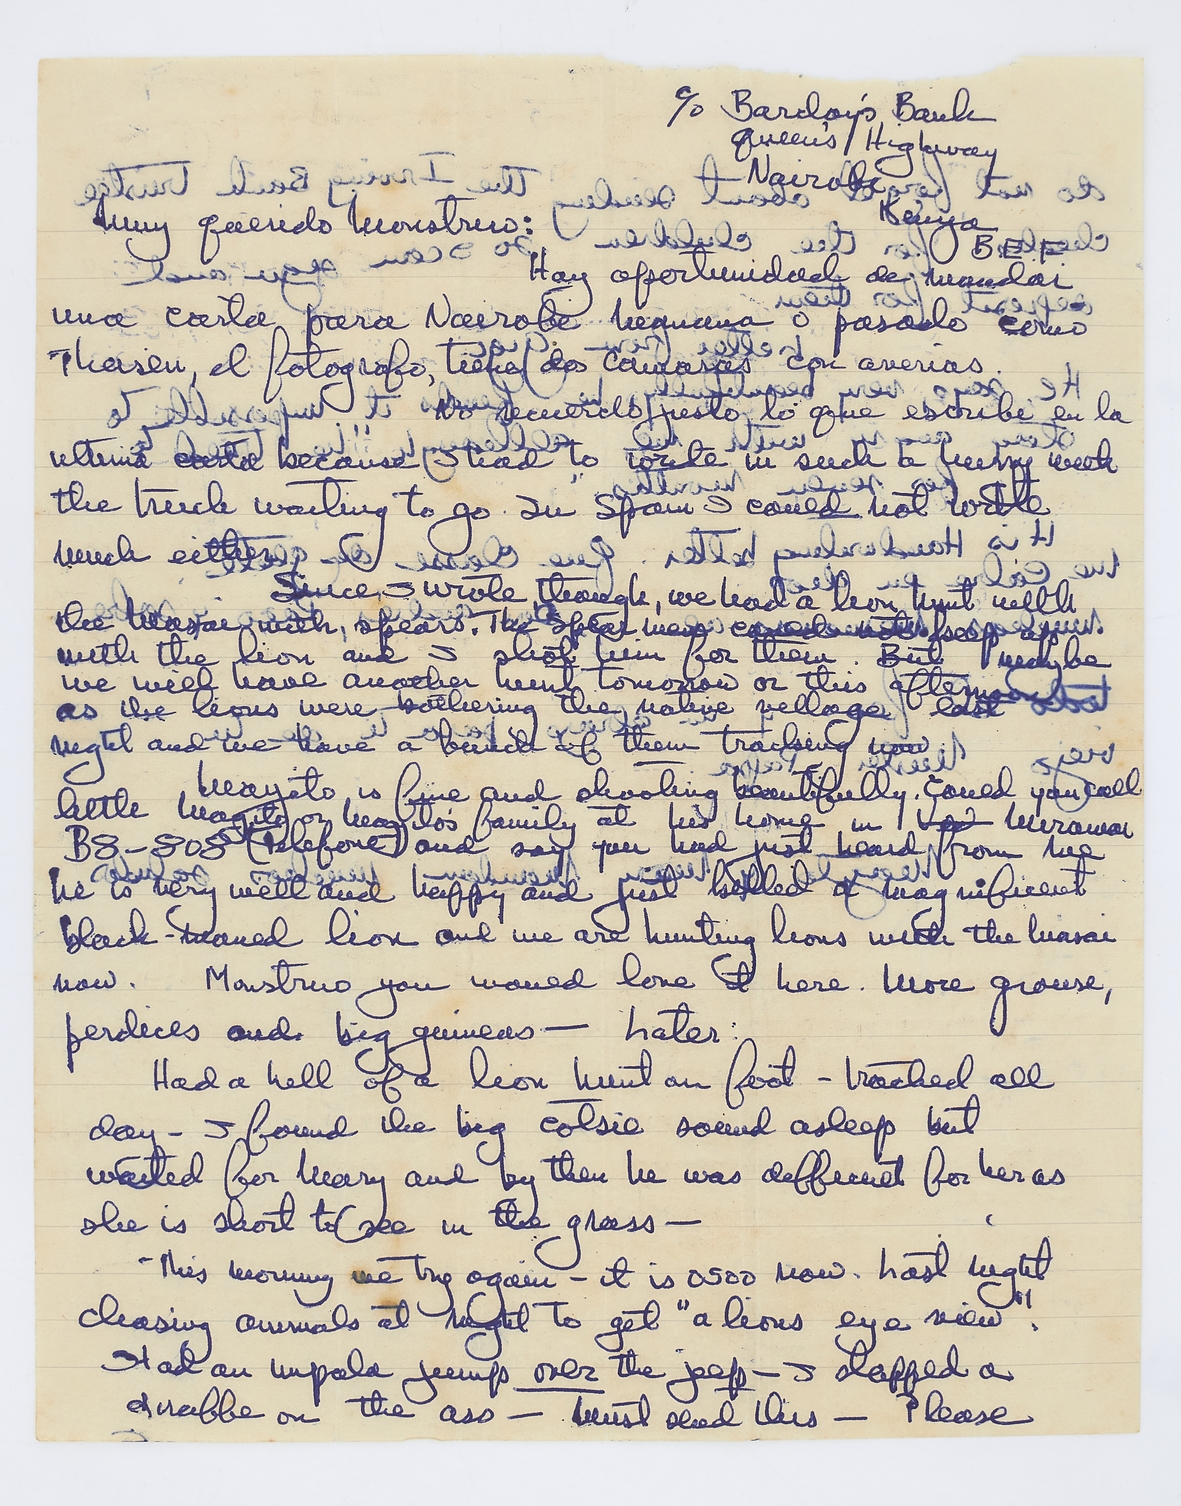 c/o Barclay's Bank
Queen's Highway
Nairobi
Kenya
B.E.F
Muy querido Monstruo:
Hay oportunidad de mandar
una carta para Nairobi manana o pasado como
Theisen, el fotografo, tiene dos camaras con averias.
No recuerdo justo lo que escribi en la
ultima carta because I had to write in such a hurry with
the truck waiting to go. In Spain I could not write
much either.
Since I wrote though, we had a lion hunt with
the Masai with spears. The spear men could not keep up
with the lion and I shot him for them. But maybe
we will have another hunt tomorrow or this afternoon
as the lions were bothering the native village last
night and we have a bunch of them tracking now.
Mayito is fine and shooting beautifully. Could you call
little Mayito or Mayito's family at his home in Miramar
B8-808 (telefono) and say you had just heard from me
he is very well and happy and just killed a magnificent
black-maned lion and we are hunting lions with the Masai
now. Monstruo you would love it here. More grouse,
perdices and big guineas — Later:
Had a hell of a lion hunt on foot - tracked all
day - I found the big cotsie sound asleep but
waited for Mary and by then he was difficult for her as
she is short to see in the grass —
This morning we try again - it is 0500 now. Last night
chasing animals at night to get "a lions eye view".
Had an impala jump over the jeep — I slapped a
on the ass — must send this — Please